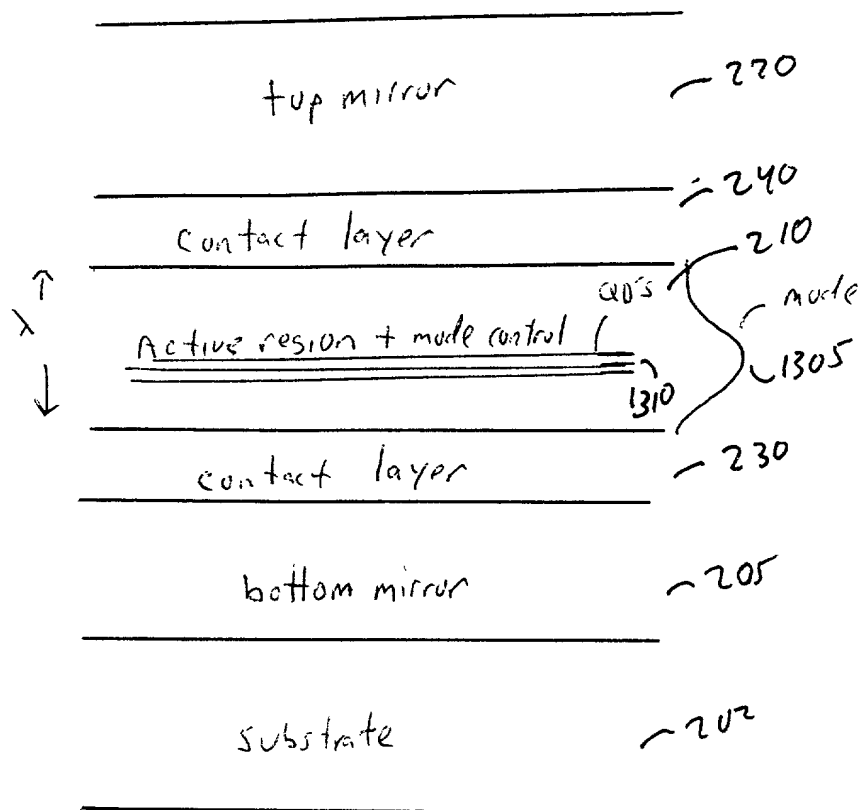 top mirror 220
240
contact layer
210
QD's
mode
λ
Active region + mode control
1310
1305
contact layer 230
bottom mirror 205
substrate 202